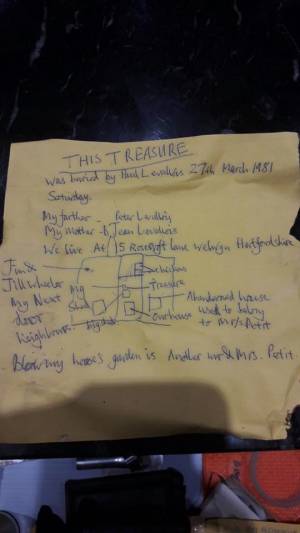 THIS TREASURE
was buried by Paul Lewalkis 27th March 1981
Saturday.
My farther - Peter
My Mother - Jean
We live At 15 Rosecroft lane Welwyn Hertfordshire
Jim &
Jill wheeler
My Next
door
neighbours
My
Shed
chickens
treasure
our house
Abandoned house
used to belong
to Mr/s Petit
Below my houses garden is Another Mr & Mrs. Petit.